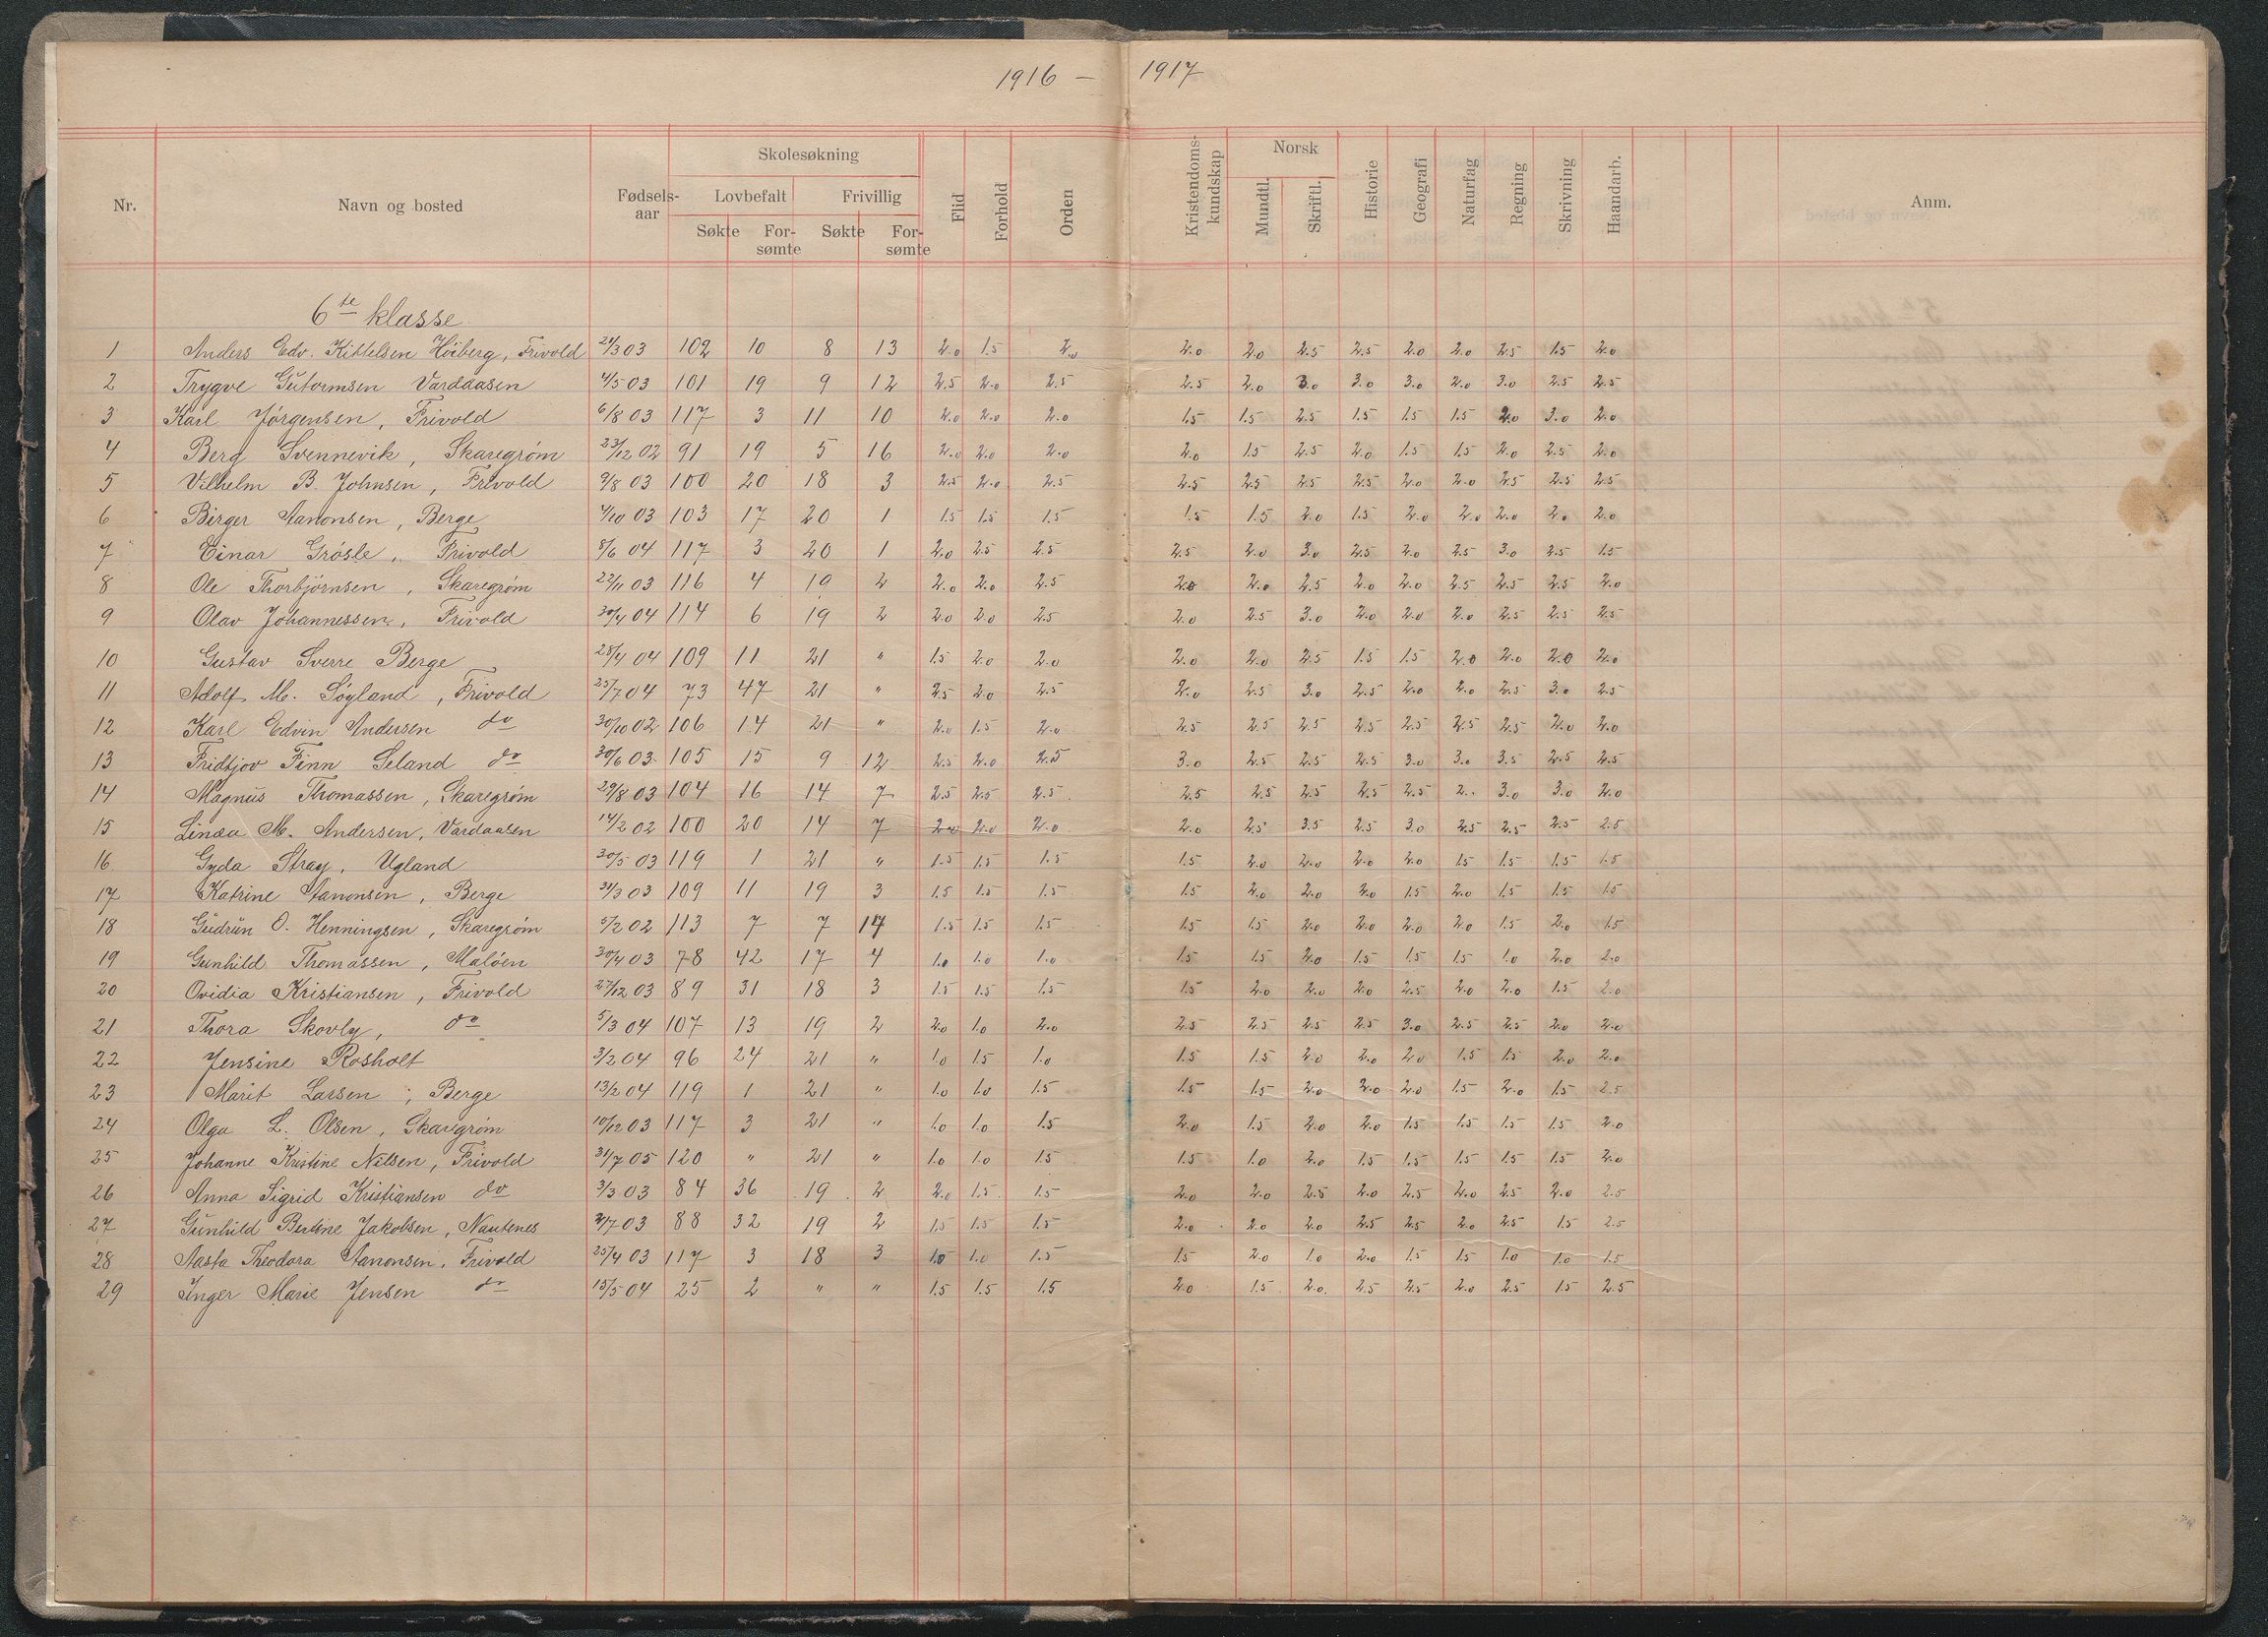 1916 — 1917
Nr. Navn og bosted Fødsels-aar Skolesøkning Lovbefalt Søkte For-sømte Frivillig Søkte For-sømte Flid Forhold Orden Kristendoms-kundskap Norsk Mundtl. Skriftl. Historie Geografi Naturfag Regning Skrivning Haandarb. Anm.
6te klasse
1 Anders Edv. Kittelsen Høiberg, Frivold 24/3 03 102 10 8 13 2.0 1.5 2.0 2.0 2.0 2.5 2.5 2.0 2.0 2.5 1.5 2.0
2 Trygve Gutormsen Vardaasen 4/5 03 101 19 9 12 2.5 2.0 2.5 2.5 2.0 3.0 3.0 3.0 2.0 3.0 2.5 2.5
3 Karl Jørgensen, Frivold 6/8 03 117 3 11 10 2.0 2.0 2.0 1.5 1.5 2.5 1.5 1.5 1.5 2.0 3.0 2.0
4 Berg Svennevik, Skaregrøm 23/12 02 91 19 5 16 2.0 2.0 2.0 2.0 1.5 2.5 2.0 1.5 1.5 2.0 2.5 2.0
5 Vilhelm B. Johnsen, Frivold 9/8 03 100 20 18 3 2.5 2.0 2.5 2.5 2.5 2.5 2.5 2.0 2.0 2.5 2.5 2.5
6 Birger Aanonsen, Berge 4/10 03 103 17 20 1 1.5 1.5 1.5 1.5 1.5 2.0 1.5 2.0 2.0 2.0 2.0 2.0
7 Einar Grøsle, Frivold 8/6 04 117 3 20 1 2.0 2.5 2.5 2.5 2.0 3.0 2.5 2.0 2.5 3.0 2.5 1.5
8 Ole Thorbjørnsen, Skaregrøm 22/11 03 116 4 19 2 2.0 2.0 2.5 2.0 2.0 2.5 2.0 2.0 2.5 2.5 2.5 2.0
9 Olav Johannessen, Frivold 30/4 04 114 6 19 2 2.0 2.0 2.5 2.0 2.5 3.0 2.0 2.0 2.0 2.5 2.5 2.5
10 Gustav Sverre Berge 28/4 04 109 11 21 " 1.5 2.0 2.0 2.0 2.0 2.5 1.5 1.5 2.0 2.0 2.0 2.0
11 Adolf M. Søyland, Frivold 25/7 04 73 47 21 " 2.5 2.0 2.5 2.0 2.5 3.0 2.5 2.0 2.0 2.5 3.0 2.5
12 Karl Edvin Andersen do 30/10 02 106 14 21 " 2.0 1.5 2.0 2.5 2.5 2.5 2.5 2.5 2.5 2.5 2.0 2.0
13 Fridtjov Finn Seland do 30/6 03 105 15 9 12 2.5 2.0 2.5 3.0 2.5 2.5 2.5 3.0 3.0 3.5 2.5 2.5
14 Magnus Thomassen, Skaregrøm 29/8 03 104 16 14 7 2.5 2.5 2.5 2.5 2.5 2.5 2.5 2.5 2. 3.0 3.0 2.0
15 Linda M. Andersen, Vardaasen 14/2 02 100 20 14 7 2.0 2.0 2.0 2.0 2.5 3.5 2.5 3.0 2.5 2.5 2.5 2.5
16. Gyda Stray, Ugland 30/5 03 119 1 21 " 1.5 1.5 1.5 1.5 2.0 2.0 2.0 2.0 1.5 1.5 1.5 1.5
17 Katrine Aanonsen, Berge 31/3 03 109 11 19 3 1.5 1.5 1.5 1.5 2.0 2.0 2.0 1.5 2.0 1.5 1.5 1.5
18 Gudrun O. Henningsen, Skaregrøm 5/2 02 113 7 7 14 1.5 1.5 1.5 1.5 1.5 2.0 2.0 2.0 2.0 1.5 2.0 1.5
19 Gunhild Thomassen, Maløen 30/4 03 78 42 17 4 1.0 1.0 1.0 1.5 1.5 2.0 1.5 1.5 1.5 1.0 2.0 2.0
20 Ovidia Kristiansen, Frivold 27/12 03 89 31 18 3 1.5 1.5 1.5 1.5 2.0 2.0 2.0 2.5 2.0 2.0 1.5 2.0
21 Thora Skovly, do 5/3 04 107 13 19 2 2.0 1.0 2.0 2.5 2.5 2.5 2.5 3.0 2.5 2.5 2.0 2.0
22 Jensine Rosholt 3/2 04 96 24 21 " 1.0 1.5 1.0 1.5 1.5 2.0 2.0 2.0 1.5 1.5 2.0 2.0
23 Marit Larsen, Berge 13/2 04 119 1 21 " 1.0 1.0 1.5 1.5 1.5 2.0 2.0 2.0 1.5 2.0 1.5 2.5
24 Olga L. Olsen, Skaregrøm 10/12 03 117 3 21 " 1.0 1.0 1.5 2.0 1.5 2.0 2.0 1.5 1.5 1.5 1.5 2.0
25 Johanne Kristine Nilsen, Frivold 31/7 05 120 " 21 " 1.0 1.0 1.5 1.5 1.0 2.0 1.5 1.5 1.5 1.5 1.5 2.0
26 Anna Sigrid Kristiansen do 3/3 03 84 36 19 2 2.0 1.5 1.5 2.0 2.0 2.5 2.0 2.5 2.0 2.5 2.0 2.5
27 Gunhild Bertine Jakobsen, Nautenes 2/7 03 88 32 19 2 1.5 1.5 1.5 2.0 2.0 2.0 2.5 2.5 2.0 2.5 1.5 2.5
28 Aasta Theodora Aanonsen, Frivold 25/4 03 117 3 18 3 1.0 1.0 1.5 1.5 2.0 1.0 2.0 1.5 1.5 1.0 1.0 1.5
29 Inger Marie Jensen do 15/5 04 25 2 " " 1.5 1.5 1.5 2.0 1.5 2.0 2.5 2.5 2.0 2.5 1.5 2.5